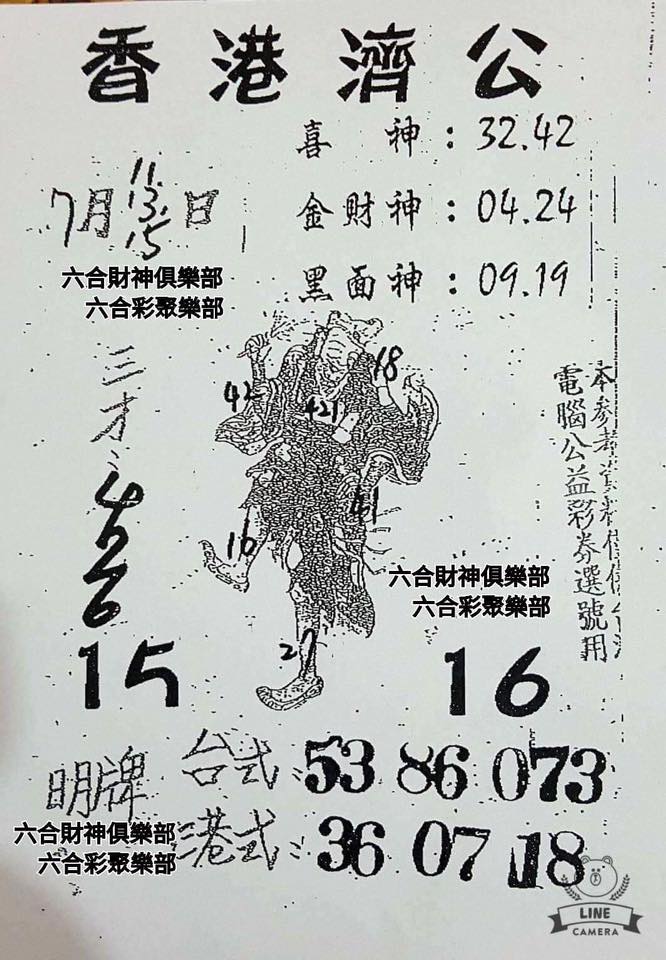 香港濟公
喜神：32.42
7月11.13.15日
金財神：04.24
黑面神：09.19
六合財神俱樂部
六合彩聚樂部
三才：
4
5
6
42
18
421
41
16
27
電腦公益彩券選號用
本參考資料僅供台灣
六合財神俱樂部
六合彩聚樂部
15
16
明牌
台式：53 86 073
港式：36 07 18
六合財神俱樂部
六合彩聚樂部
LINE
CAMERA